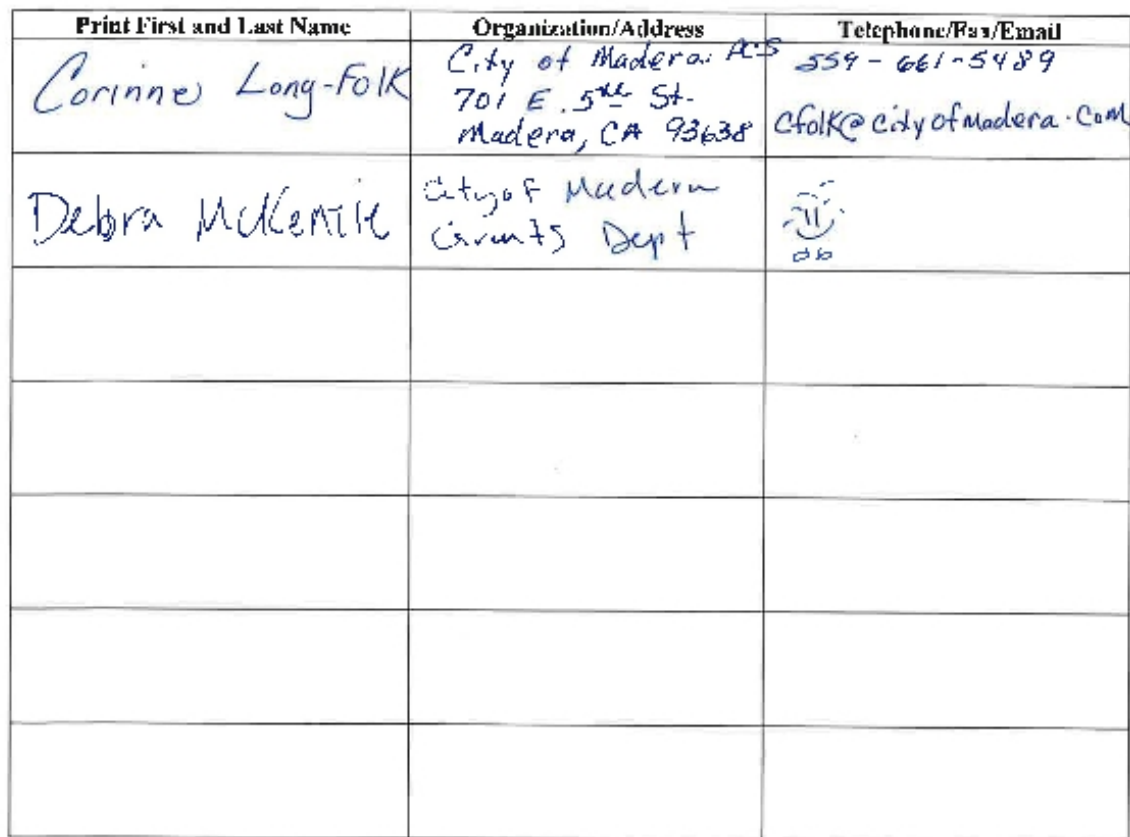 Print First and Last Name Organization/Address Telephone/Fax/Email
Corinne Long-Folk
City of Madera PCS
701 E. 5th St.
Madera, CA 93638
559-661-5489
cfolk@cityofmadera.com
Debra McKenzie
City of Madera
Grants Dept